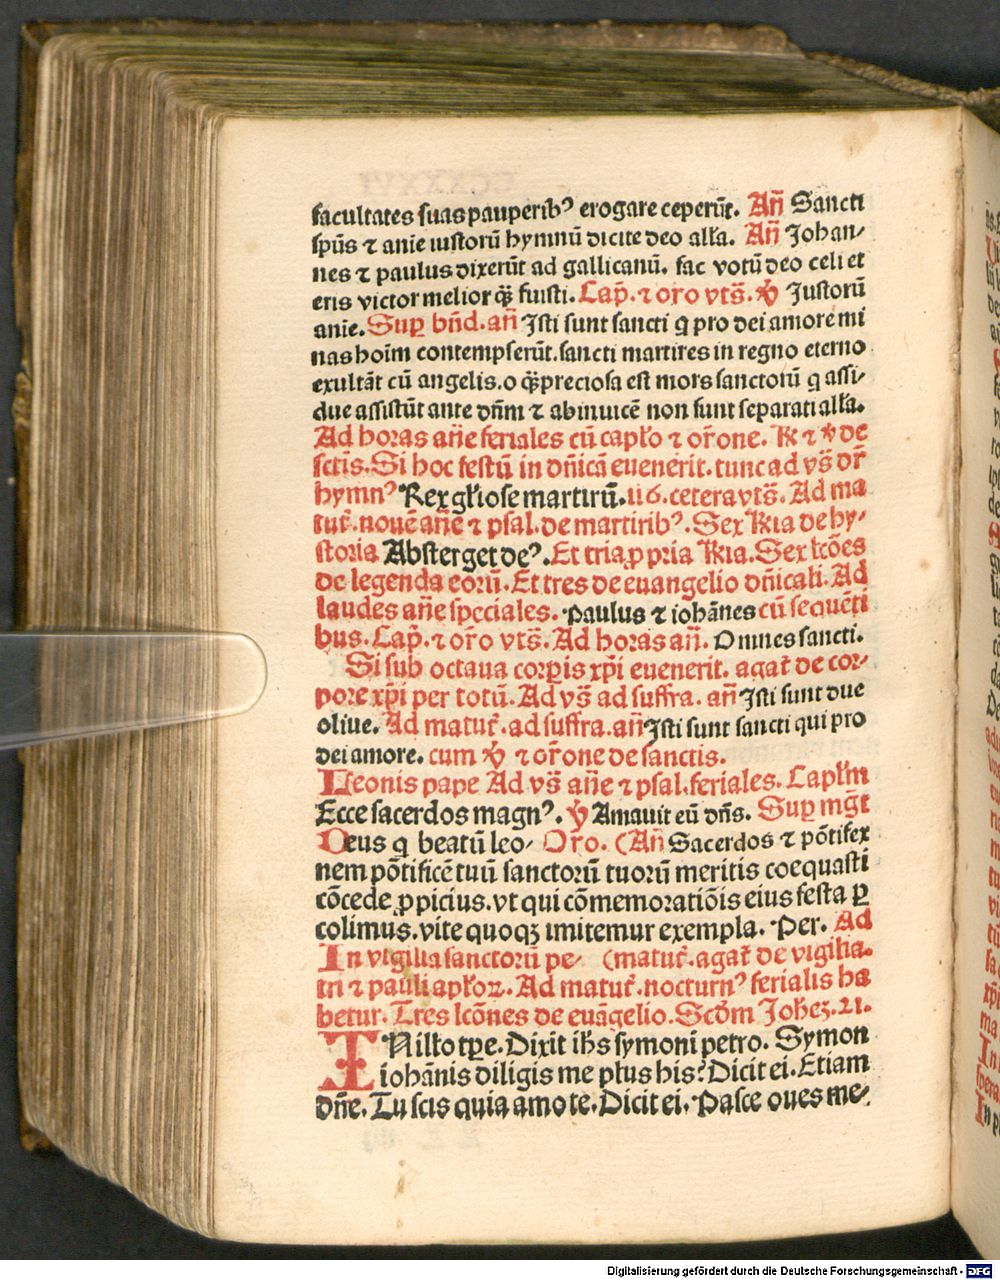 facultates suas pauperibꝰ erogare ceperūt. Añ Sancti
spūs ⁊ anie iustorū hymnū dicite deo alľa. Añ Johan-
nes ⁊ paulus dixerūt ad gallicanū. fac votū deo celi et
eris victor melior q̄ꝫ fuisti. Cap̄. ⁊ oro vts̄. ℣ Justorū
anie. Suꝑ bn̄d. añ Isti sunt sancti q pro dei amore mi
nas hoīm contempserūt. sancti martires in regno eterno
exultāt cū angelis. o q̄ꝫ preciosa est mors sanctorū q assi-
due assistūt ante dn̄m ⁊ abinuicē non sunt separati alľa.
Ad horas añe feriales cū capľo ⁊ or̄one. ℟ ⁊ ℣ de
sctīs. Si hoc festū in dn̄icā euenerit. tunc ad vs̄ dr̄
hymnꝰ Rex gľiose martirū. 116. cetera vts̄. Ad ma
tut̄. nouē añe ⁊ psal. de martiribꝰ. Sex ℟ia de hy-
storia Absterget deꝰ. Et tria ꝓpria ℟ia. Sex lcōes
de legenda eorū. Et tres de euangelio dn̄icali. Ad
laudes añe speciales. Paulus ⁊ iohānes cū sequēti
bus. Cap̄. ⁊ oro vts̄. Ad horas añ. Omnes sancti.
Si sub octaua corꝑis xp̄i euenerit. agat̄ de cor-
pore xp̄i per totū. Ad vs̄ ad suffra. añ Isti sunt due
oliue. Ad matut̄. ad suffra. añ Isti sunt sancti qui pro
dei amore. cum ℣ ⁊ or̄one de sanctis.
Leonis pape Ad vs̄ añe ⁊ psal. feriales. Capľm
Ecce sacerdos magnꝰ. ℣ Amauit eū dn̄s. Suꝑ mḡt
Deus q beatū leo- Oro. (Añ Sacerdos ⁊ pōtifex
nem pōtificē tuū sanctorū tuorū meritis coequasti
cōcede ꝓpicius. vt qui cōmemoratiōis eius festa ꝑ
colimus. vite quoqꝫ imitemur exempla. Per. Ad
In vigilia sanctorū pe- (matut̄. agat̄ de vigilia.
tri ⁊ pauli apľoꝝ. Ad matut̄. nocturnꝰ ferialis ha
betur. Tres lcōnes de euāgelio. Scd̄m Joheꝫ. 21.
IN illo tꝑe. Dixit ih̄s symoni petro. Symon
iohānis diligis me plus his? Dicit ei. Etiam
dn̄e. Tu scis quia amo te. Dicit ei. Pasce oues me-
Digitalisierung gefördert durch die Deutsche Forschungsgemeinschaft - DFG